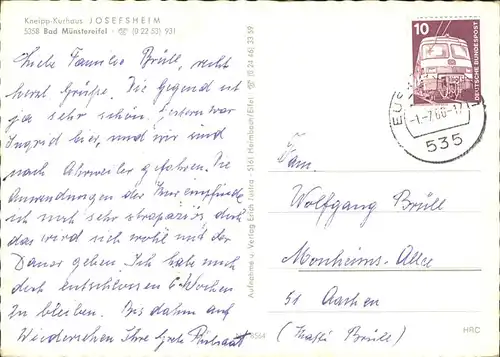 Kneipp-Kurhaus JOSEFSHEIM
5358 Bad Münstereifel · ☏ (0 22 53) 931
Liebe Familie Brüll, recht
herzl. Grüße. Die Gegend ist
ja sehr schön. Gestern war
Ingrid hier, und wir sind
nach Ahrweiler gefahren. Die
Anwendungen der Kur empfinde
ich noch sehr strapaziös, doch
das wird sich wohl mit der
Dauer geben. Ich habe mich
doch entschlossen 6 Wochen
zu bleiben. Bis dahin auf
Wiedersehen Ihre Grete
Aufnahme u. Verlag Erich Justra · 5161 Heimbach/Eifel ☏ (0 24 46) 33 59
6564
10
DEUTSCHE BUNDESPOST
EUS
-1.-7.80-17
535
Fam.
Wolfgang Brüll
Monheims-Allee
51 Aachen
Brüll)
HRC